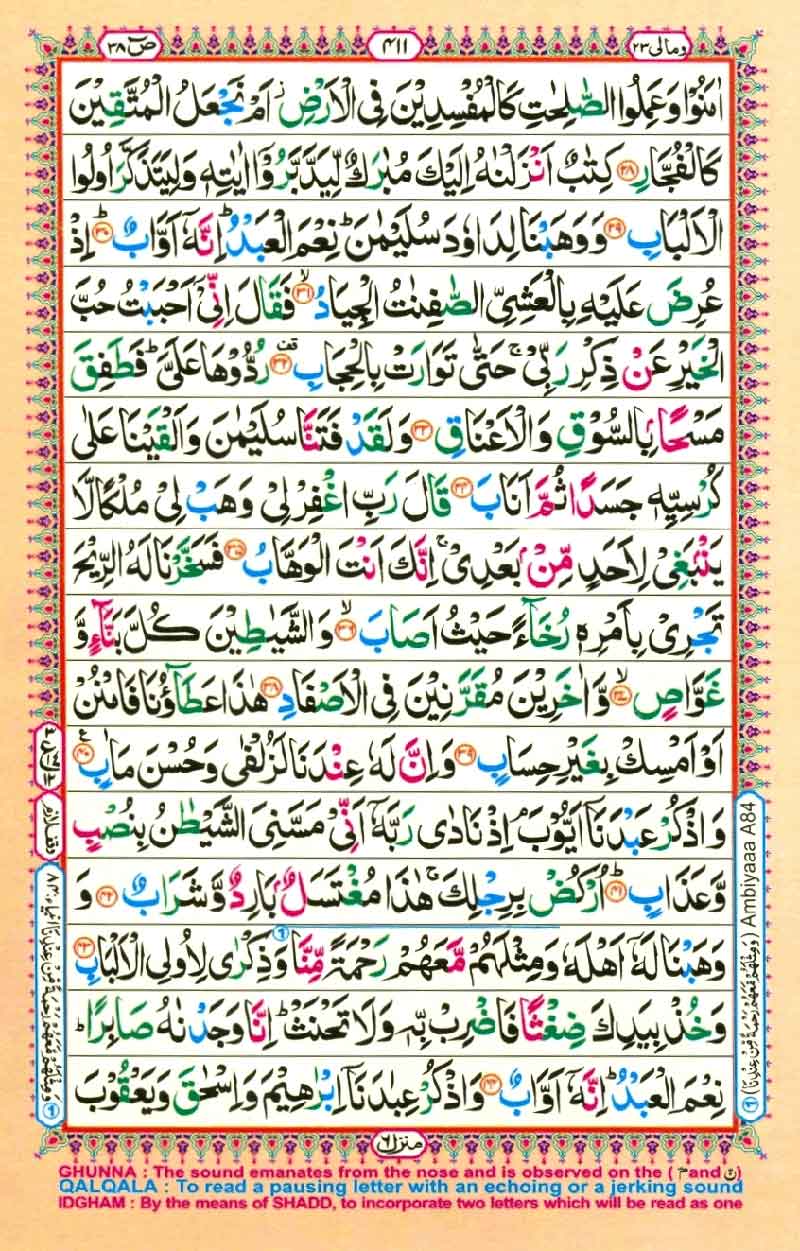 ومالی ٢٣
٤١١
صٓ ٣٨
اٰمَنُوْا وَعَمِلُوا الصّٰلِحٰتِ كَالْمُفْسِدِيْنَ فِي الْاَرْضِ ۫ اَمْ نَجْعَلُ الْمُتَّقِيْنَ
كَالْفُجَّارِ ﴿٢٨﴾ كِتٰبٌ اَنْزَلْنٰهُ اِلَيْكَ مُبٰرَكٌ لِّيَدَّبَّرُوْۤا اٰيٰتِهٖ وَلِيَتَذَكَّرَ اُولُوا
الْاَلْبَابِ ﴿٢٩﴾ وَوَهَبْنَا لِدَاوٗدَ سُلَيْمٰنَ ؕ نِعْمَ الْعَبْدُ ؕ اِنَّهٗۤ اَوَّابٌ ؕ ﴿٣٠﴾ اِذْ
عُرِضَ عَلَيْهِ بِالْعَشِيِّ الصّٰفِنٰتُ الْجِيَادُ ۙ ﴿٣١﴾ فَقَالَ اِنِّيْۤ اَحْبَبْتُ حُبَّ
الْخَيْرِ عَنْ ذِكْرِ رَبِّيْ ۚ حَتّٰى تَوَارَتْ بِالْحِجَابِ ﴿٣٢﴾ رُدُّوْهَا عَلَيَّ ؕ فَطَفِقَ
مَسْحًۢا بِالسُّوْقِ وَالْاَعْنَاقِ ﴿٣٣﴾ وَلَقَدْ فَتَنَّا سُلَيْمٰنَ وَاَلْقَيْنَا عَلٰى
كُرْسِيِّهٖ جَسَدًا ثُمَّ اَنَابَ ﴿٣٤﴾ قَالَ رَبِّ اغْفِرْ لِيْ وَهَبْ لِيْ مُلْكًا لَّا
يَنْۢبَغِيْ لِاَحَدٍ مِّنْۢ بَعْدِيْ ۚ اِنَّكَ اَنْتَ الْوَهَّابُ ﴿٣٥﴾ فَسَخَّرْنَا لَهُ الرِّيْحَ
تَجْرِيْ بِاَمْرِهٖ رُخَآءً حَيْثُ اَصَابَ ۙ ﴿٣٦﴾ وَالشَّيٰطِيْنَ كُلَّ بَنَّآءٍ وَّ
غَوَّاصٍ ۙ ﴿٣٧﴾ وَّاٰخَرِيْنَ مُقَرَّنِيْنَ فِي الْاَصْفَادِ ﴿٣٨﴾ هٰذَا عَطَآؤُنَا فَامْنُنْ
اَوْ اَمْسِكْ بِغَيْرِ حِسَابٍ ﴿٣٩﴾ وَاِنَّ لَهٗ عِنْدَنَا لَزُلْفٰى وَحُسْنَ مَاٰبٍ ﴿٤٠﴾
وَاذْكُرْ عَبْدَنَاۤ اَيُّوْبَ ۘ اِذْ نَادٰى رَبَّهٗۤ اَنِّيْ مَسَّنِيَ الشَّيْطٰنُ بِنُصْبٍ
وَّعَذَابٍ ؕ ﴿٤١﴾ اُرْكُضْ بِرِجْلِكَ ۚ هٰذَا مُغْتَسَلٌۢ بَارِدٌ وَّشَرَابٌ ﴿٤٢﴾ وَ
وَهَبْنَا لَهٗۤ اَهْلَهٗ وَمِثْلَهُمْ مَّعَهُمْ رَحْمَةً مِّنَّا وَذِكْرٰى لِاُولِي الْاَلْبَابِ ﴿٤٣﴾
وَخُذْ بِيَدِكَ ضِغْثًا فَاضْرِبْ بِّهٖ وَلَا تَحْنَثْ ؕ اِنَّا وَجَدْنٰهُ صَابِرًا ؕ
نِعْمَ الْعَبْدُ ؕ اِنَّهٗۤ اَوَّابٌ ﴿٤٤﴾ وَاذْكُرْ عِبٰدَنَاۤ اِبْرٰهِيْمَ وَاِسْحٰقَ وَيَعْقُوْبَ
وقف لازم
(وَمِثْلَهُمْ مَّعَهُمْ رَحْمَةً مِّنْ عِنْدِنَا) Ambiyaaa A84
منزل ٦
GHUNNA : The sound emanates from the nose and is observed on the ( مّ and نّ )
QALQALA : To read a pausing letter with an echoing or a jerking sound
IDGHAM : By the means of SHADD, to incorporate two letters which will be read as one